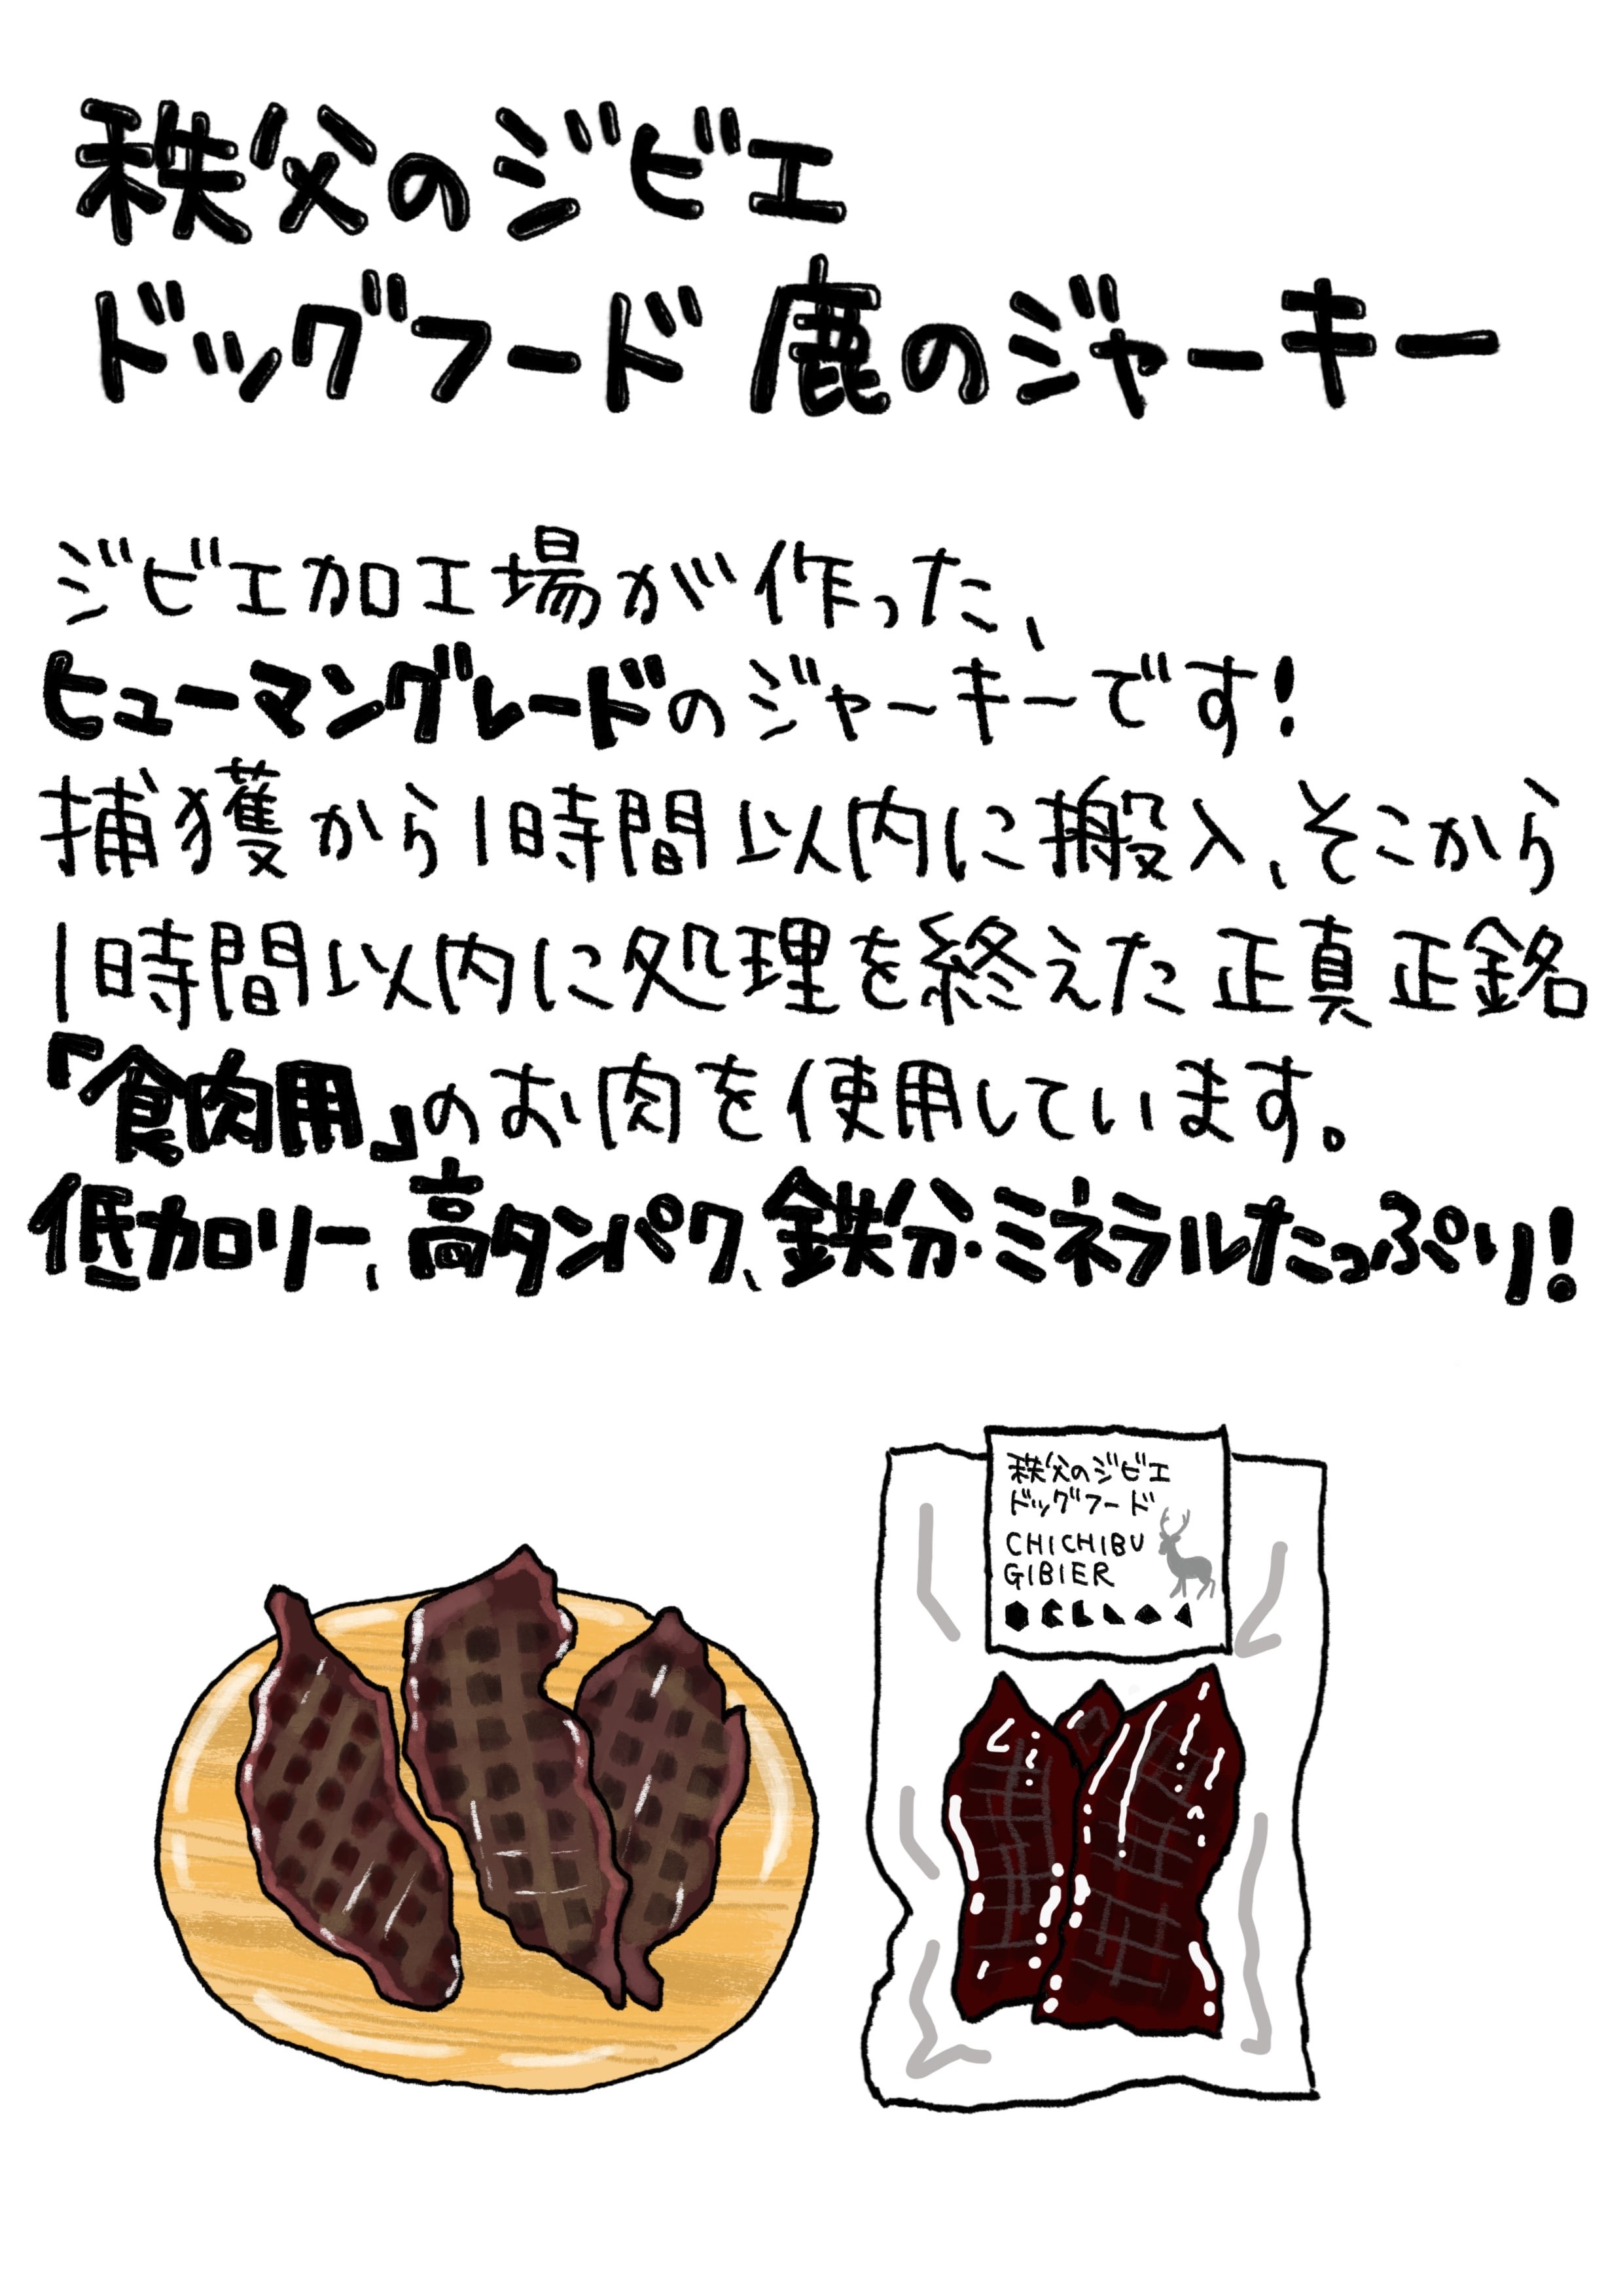 秩父のジビエ
ドッグフード 鹿のジャーキー
ジビエ加工場が作った、
ヒューマングレードのジャーキーです!
捕獲から1時間以内に搬入、そこから
1時間以内に処理を終えた正真正銘
「食肉用」のお肉を使用しています。
低カロリー、高タンパク、鉄分・ミネラルたっぷり!
秩父のジビエ
ドッグフード
CHICHIBU
GIBIER